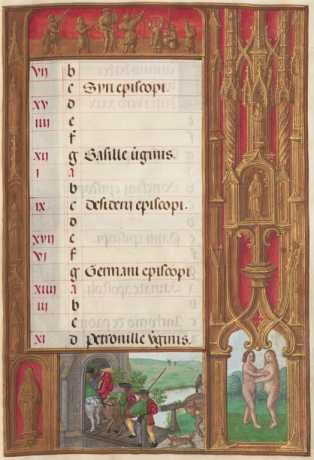 vij b
c Syri episcopi.
xv d
iiij e
f
xij g Basille v̄ginis.
i a
b
ix c Desiderij episcopi.
d
xvij e
vi f
g Germani episcopi
xiiij a
iij b
c
xi d Petronille v̄ginis.